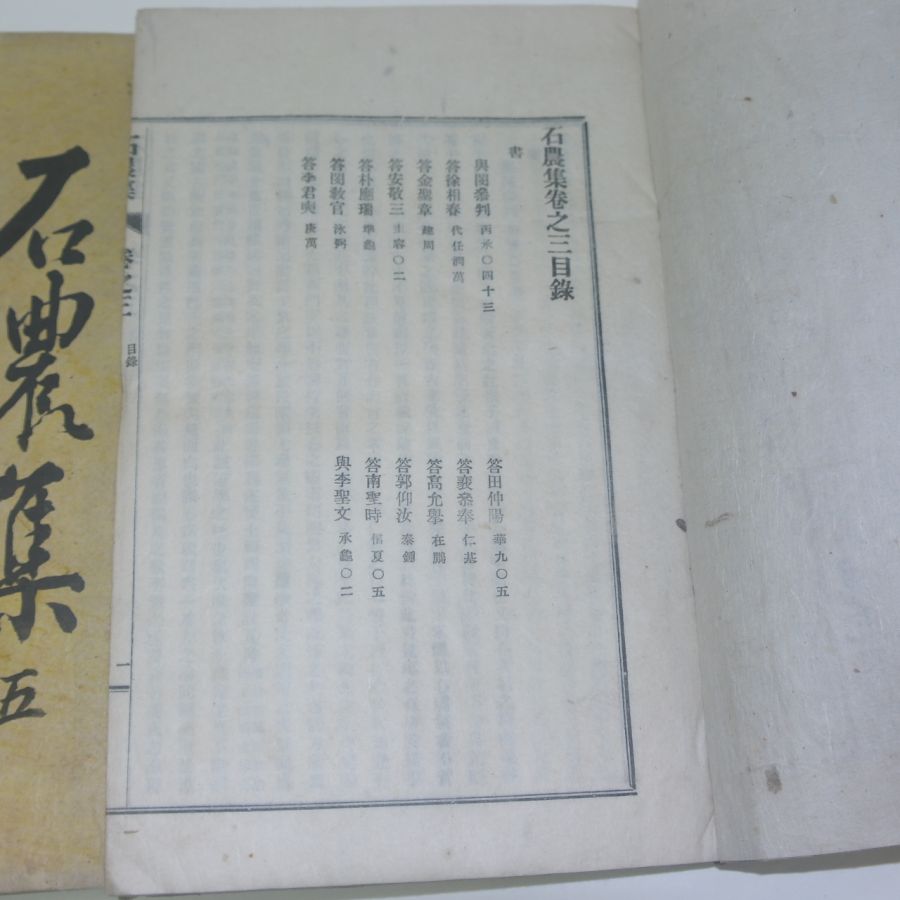 石農集卷之三目錄
書
與閔參判 丙承○四十三
答田仲陽 華九○五
答徐相春 代任潤萬
答裵參奉 仁基
答金聖章 建周
答高允擧 在鵬
答安敬三 ○二
答郭仰汝 泰鍾
答朴應瑞 準龜
答南聖時 夏○五
答閔敎官 泳弼
與李聖文 承龜○二
答李君奭 庚萬
石農集
卷之三
目錄
一
石農集 五